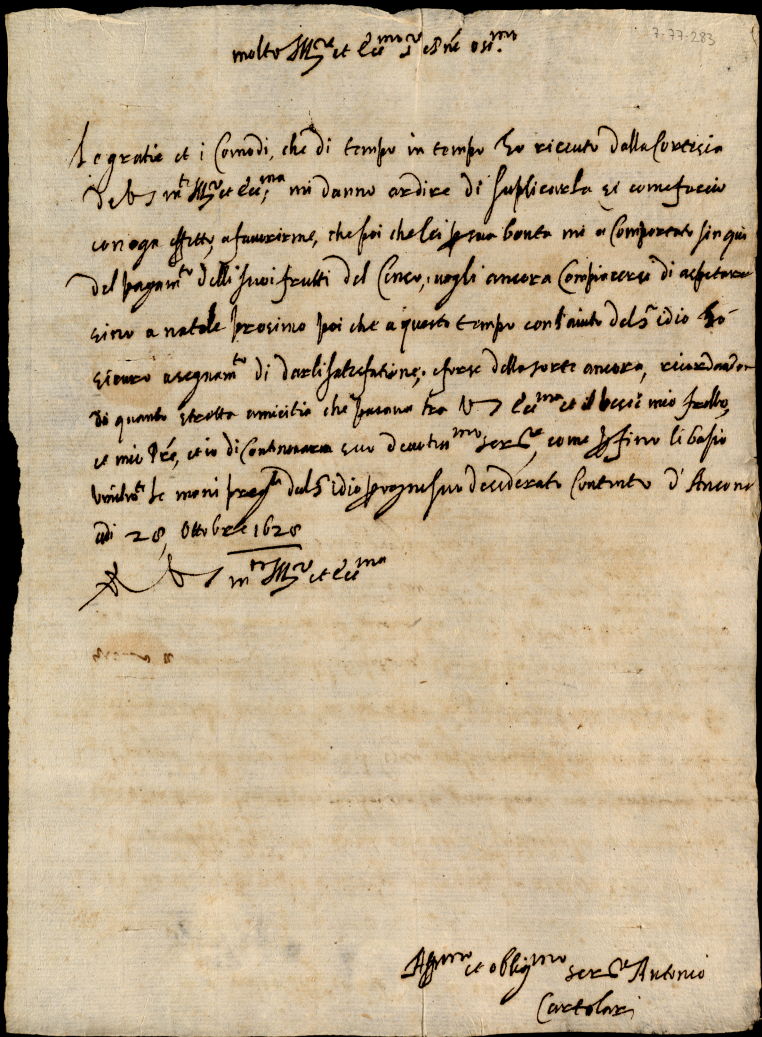 7.77.283
molto Ill.re et Ecc.mo s.r
Le gratie et i Comodi, che di tempo in tempo ho riceuto dalla Cortesia
de V S m.to Ill.re et Ecc.ma mi danno ardire di suplicarla si come faccio
con ogn effetto, a fauorirme, che poi che lei p sua bonta mi a Comportato sin qui
del pagam.to delli suoi frutti del Censo, uogli ancora Compiacersi di aspetare
sino a natale prosimo poi che a questo tempo con l'aiuto del S.r idio ho
sicuro asegnam.to di darli satisfatione, e forse della sorte ancora, ricordandosi
di quanto stretta amicitia che pasaua tra V S Ecc.ma et il mio fratello,
et mio Pre, et io di Continouarli suo deuotiss.mo ser.re, come p fine li basio
le mani preg.do dal S.r idio ogni suo desiderato Contento d'Ancona
adi 28, Ottobre 1628
D V S m.to Ill.re et Ecc.ma
Aff.mo et oblig.mo ser.re Antonio
Cartolari